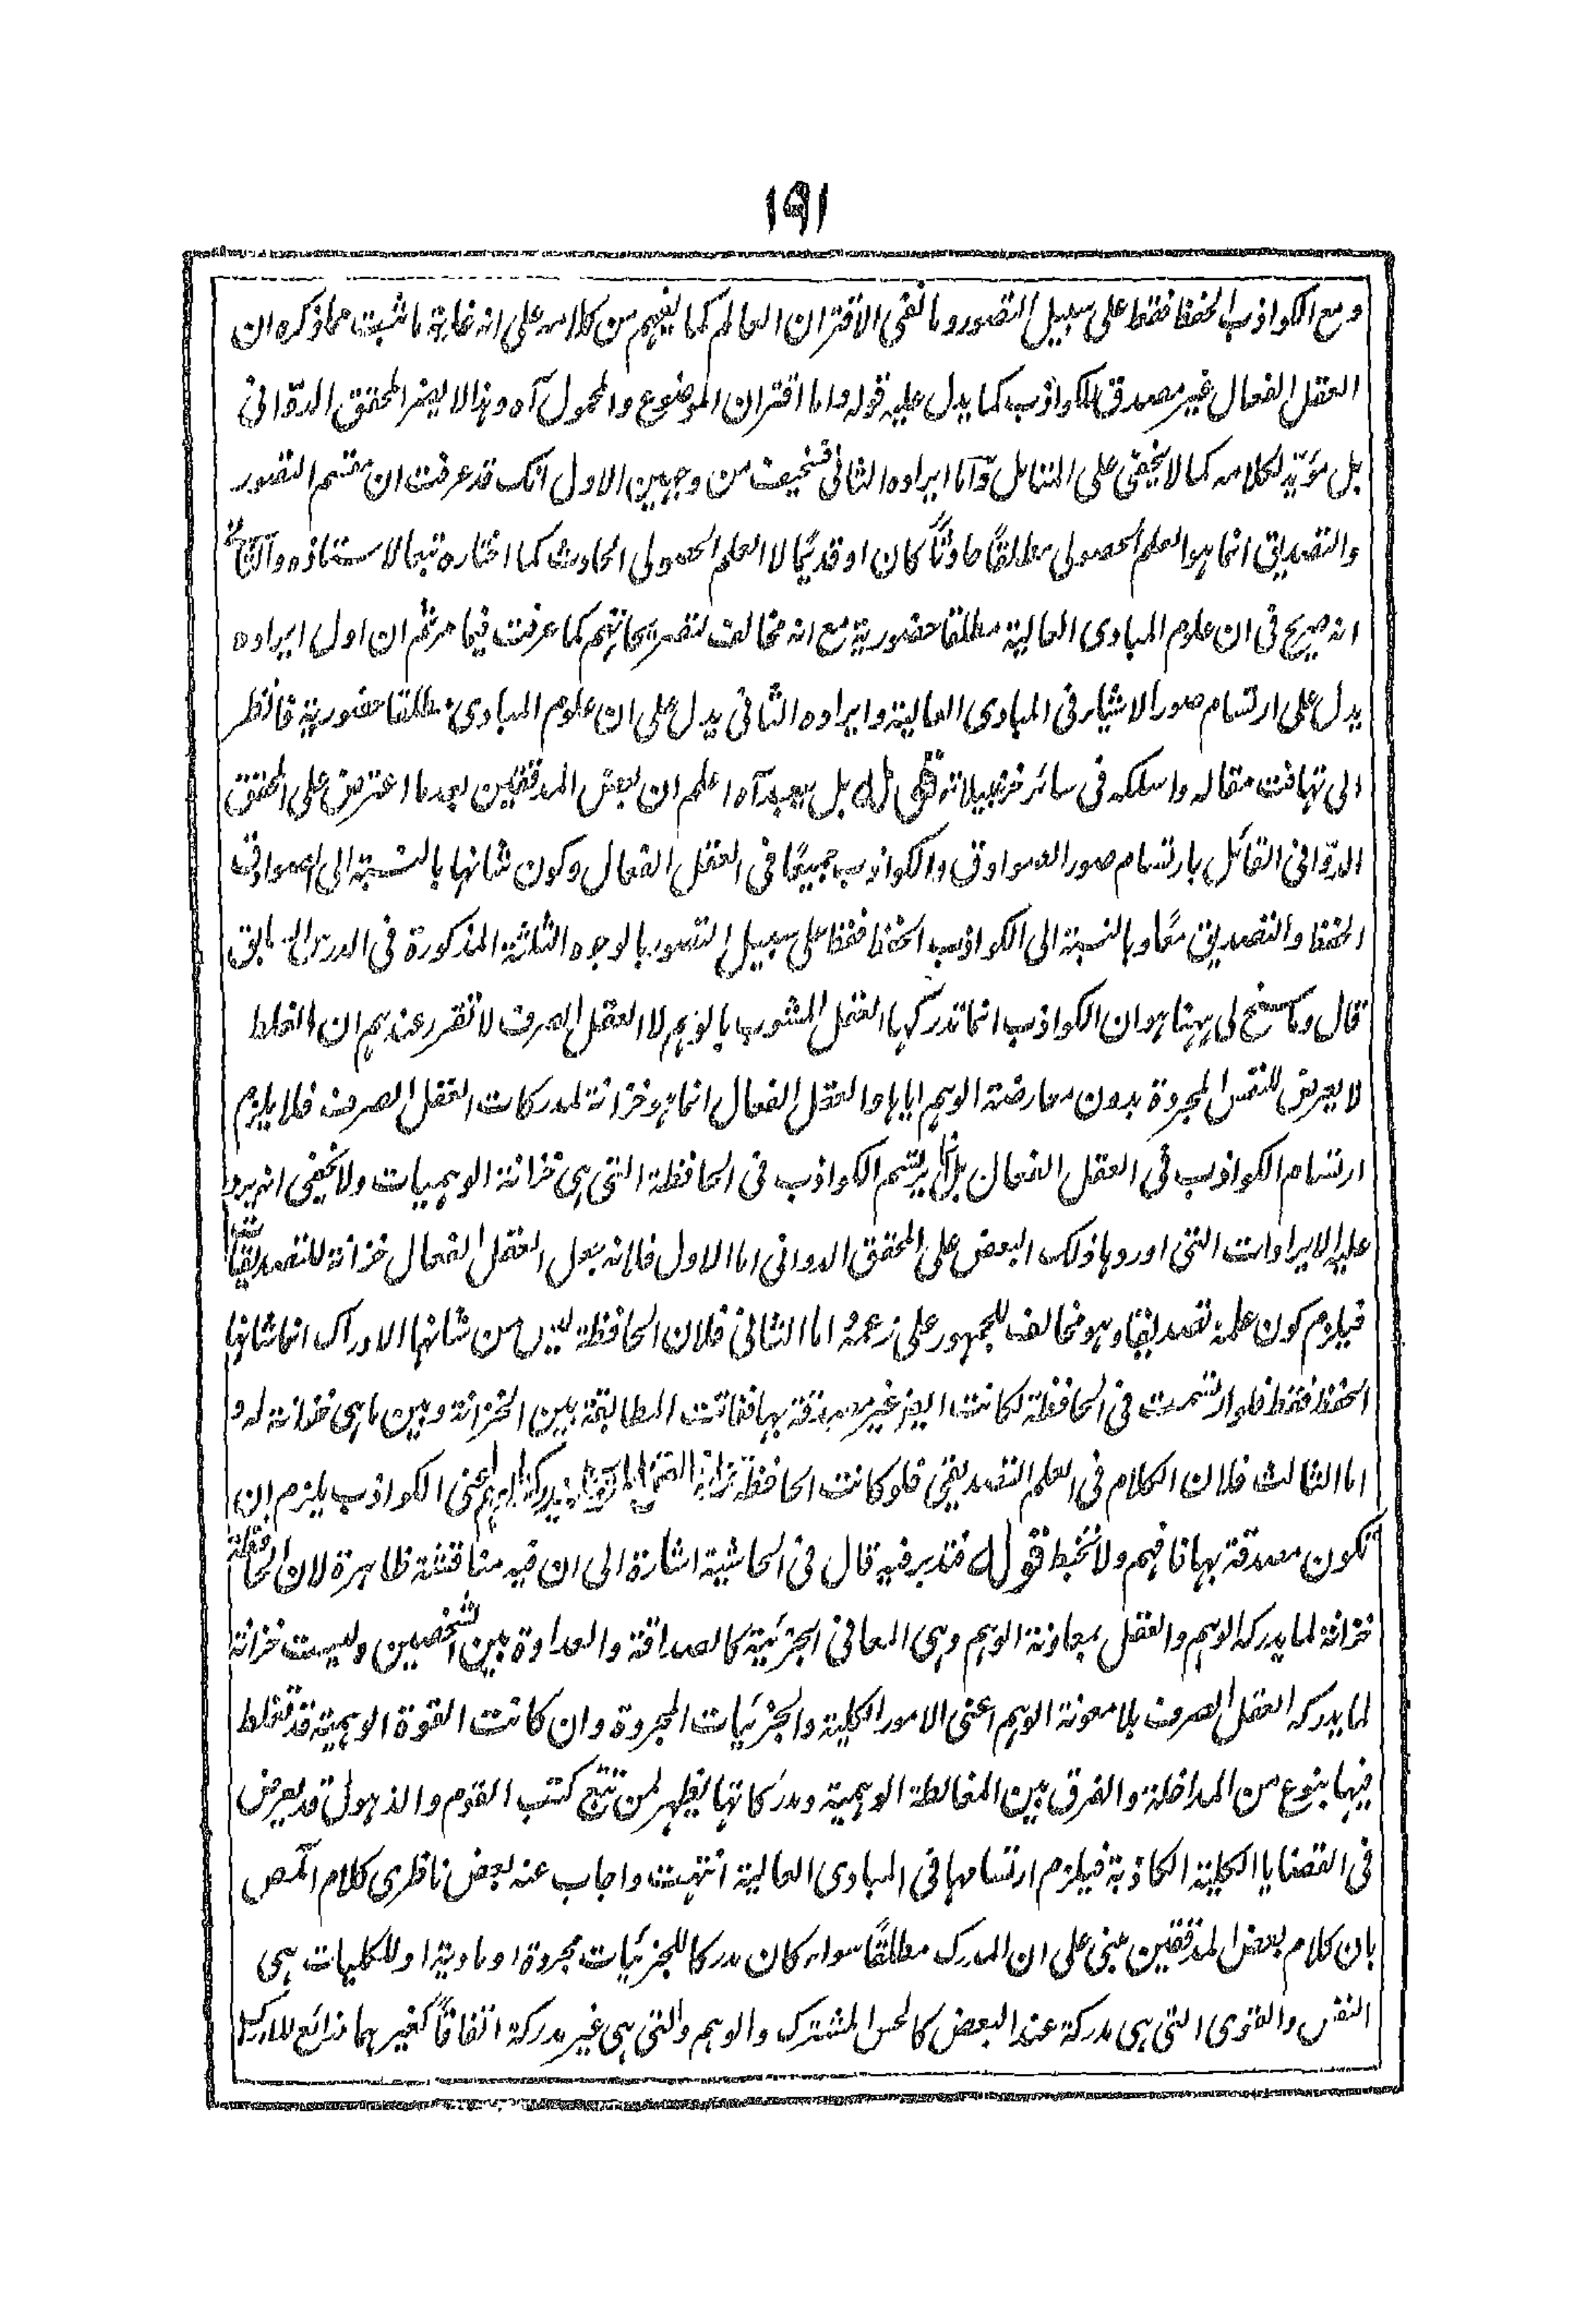 ١٩١
ومع الكواذب الحفظ فقط على سبيل التصور وما نفى الاقتران العالم كما يفهم من كلامه على انه غاية ما ثبت مما ذكره ان
العقل الفعال غير مصدق للكواذب كما يدل عليه قوله واما اقتران الموضوع والمحمول آه وهذا لا يضر المحقق الدوّانى
بل مؤيّد لكلامه كما لا يخفى على المتأمل وامّا ايراده الثانى فسخيف من وجهين الاول انك قد عرفت ان مقسم التصور
والتصديق انما هو العلم الحصولى مطلقًا حادثًا كان او قديمًا لا العلم الحصولى الحادث كما اختاره تبعا لاستاذه والثانى
انه صريح فى ان علوم المبادى العالية مطلقا حضورية مع انه مخالف لتصريحاتهم كما عرفت فيما مر ثم ان اول ايراده
يدل على ارتسام صور الاشياء فى المبادى العالية وايراده الثانى يدل على ان علوم المبادى مطلقا حضورية فانظر
الى تهافت مقاله واسلكه فى سائر خزعبيلاته قوله بل يعيد آه اعلم ان بعض المدققين بعد ما اعترض على المحقق
الدوّانى القائل بارتسام صور الصوادق والكواذب جميعًا فى العقل الفعال وكون شانها بالنسبة الى الصوادق
الحفظ والتصديق معًا وبالنسبة الى الكواذب الحفظ فقط على سبيل التصور بالوجوه الثلاثة المذكورة فى الدرس السابق
قال ومما سنح لى ههنا هو ان الكواذب انما تدركها العقل المشوب بالوهم لا العقل الصرف لا تقرر عندهم ان الغلط
لا يعرض للنفس المجردة بدون معارضة الوهم اياها والعقل الفعال انما هو خزانة لمدركات العقل الصرف فلا يلزم
ارتسام الكواذب فى العقل الفعال بل انما يرتسم الكواذب فى الحافظة التى هى خزانة الوهميات ولا يخفى انه يرد
عليه الايرادات التى اوردها ذلك البعض على المحقق الدوانى اما الاول فلانه يعول العقل الفعال خزانة للتصديقات
فيلزم كون علمه تصديقا وهو مخالف للجمهور على زعمه اما الثانى فلان الحافظة ليس من شانها الادراك انما شانها
الحفظ فقط فلو ارتسمت فى الحافظة لكانت ايضا غير مصدقة بها ففاتت المطابقة بين الخزانة وبين ما هى خزانة له و
اما الثالث فلان الكلام فى العلم التصديقى فلو كانت الحافظة خزانة اعنى الكواذب يلزم ان
تكون مصدقة بها فافهم ولا تخبط قوله فتدبر فيه قال فى الحاشية اشارة الى ان فيه مناقشة ظاهرة لان الحافظة
خزانة لما يدركه الوهم والعقل بمعاونة الوهم وهى المعانى الجزئية كالصداقة والعداوة بين الشخصين وليست خزانة
لما يدركه العقل الصرف بلا معونة الوهم اعنى الامور الكلية والجزئيات المجردة وان كانت القوة الوهمية قد تغلط
فيها بنوع من المداخلة والفرق بين المغالطة الوهمية ومدركاتها يظهر لمن تتبع كتب القوم والذهول قد يعرض
فى القضايا الكلية الكاذبة فيلزم ارتسامها فى المبادى العالية انتهت واجاب عنه بعض ناظرى كلام المص
بان كلام بعض المدققين مبنى على ان المدرك مطلقًا سواء كان مدركا للجزئيات مجردة او مادية او للكليات هى
النفس والقوى التى هى مدركة عند البعض كالحس المشترك والوهم والتى هى غير مدركة اتفاقًا كغيرهما ذرائع للادراك